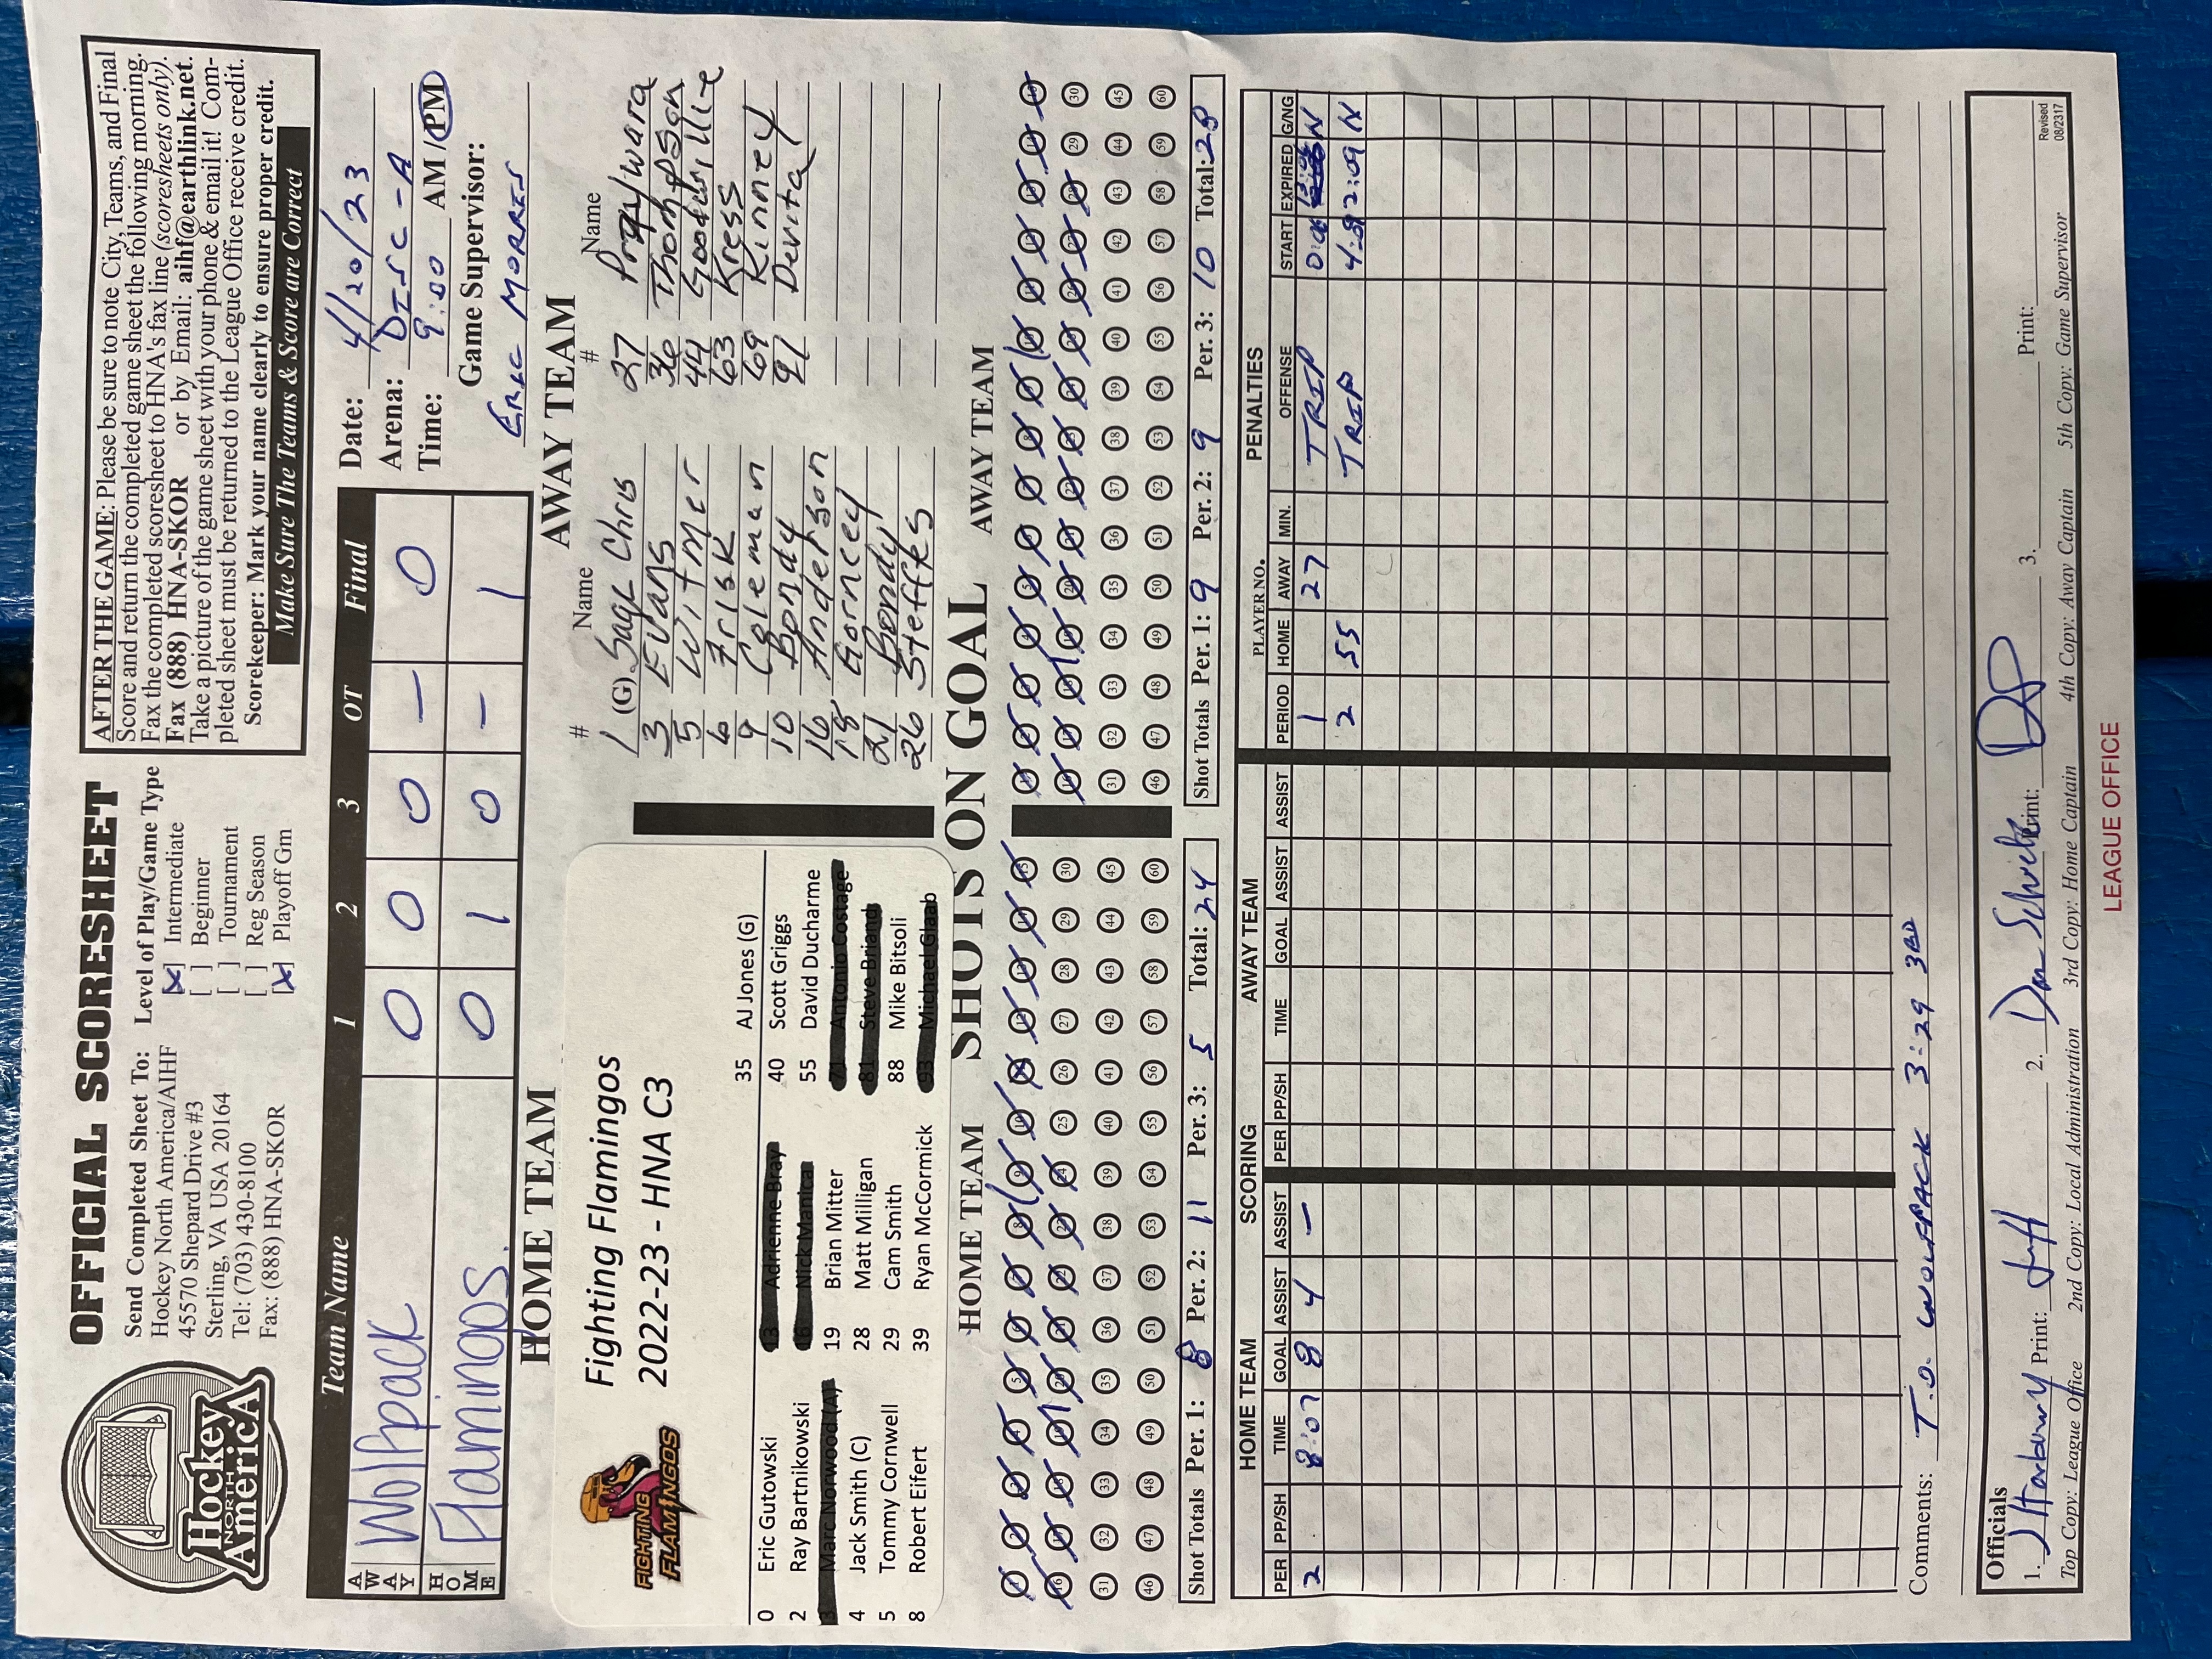 Hockey
NORTH
AmericA
OFFICIAL SCORESHEET
Send Completed Sheet To:
Hockey North America/AIHF
45570 Shepard Drive #3
Sterling, VA USA 20164
Tel: (703) 430-8100
Fax: (888) HNA-SKOR
Level of Play/Game Type
[X] Intermediate
[ ] Beginner
[ ] Tournament
[ ] Reg Season
[X] Playoff Gm
AFTER THE GAME: Please be sure to note City, Teams, and Final
Score and return the completed game sheet the following morning.
Fax the completed scoresheet to HNA's fax line (scoresheets only).
Fax (888) HNA-SKOR or by Email: aihf@earthlink.net.
Take a picture of the game sheet with your phone & email it! Com-
pleted sheet must be returned to the League Office receive credit.
Scorekeeper: Mark your name clearly to ensure proper credit.
Make Sure The Teams & Score are Correct
Team Name 1 2 3 OT Final
AWAY Wolfpack 0 0 0 – 0
HOME Flamingos 0 1 0 – 1
Date: 4/20/23
Arena: DISC-A
Time: 9:00 AM/PM
Game Supervisor:
ERIC MORRIS
HOME TEAM
AWAY TEAM
FIGHTING
FLAMINGOS
Fighting Flamingos
2022-23 - HNA C3
0 Eric Gutowski
2 Ray Bartnikowski
3 Marc Norwood (A)
4 Jack Smith (C)
5 Tommy Cornwell
8 Robert Eifert
13 Adrienne Bray
16 Nick Manica
19 Brian Mitter
28 Matt Milligan
29 Cam Smith
39 Ryan McCormick
35 AJ Jones (G)
40 Scott Griggs
55 David Ducharme
71 Antonio Costage
81 Steve Briand
88 Mike Bitsoli
93 Michael Glaab
# Name # Name
1 (G) Sage Chris
3 Evans
5 Witmer
6 Frisk
9 Coleman
10 Bondy
16 Anderson
18 Gorncey
21 Bondy
26 Steffes
27
36 Thompson
44 Goodwillie
63 Kress
69 Kinney
91 Devita
HOME TEAM SHOTS ON GOAL AWAY TEAM
1 2 3 4 5 6 7 8 9 10 11 12 13 14 15
16 17 18 19 20 21 22 23 24 25 26 27 28 29 30
31 32 33 34 35 36 37 38 39 40 41 42 43 44 45
46 47 48 49 50 51 52 53 54 55 56 57 58 59 60
1 2 3 4 5 6 7 8 9 10 11 12 13 14 15
16 17 18 19 20 21 22 23 24 25 26 27 28 29 30
31 32 33 34 35 36 37 38 39 40 41 42 43 44 45
46 47 48 49 50 51 52 53 54 55 56 57 58 59 60
Shot Totals Per. 1: 8 Per. 2: 11 Per. 3: 5 Total: 24
Shot Totals Per. 1: 9 Per. 2: 9 Per. 3: 10 Total: 28
HOME TEAM SCORING AWAY TEAM
PER PP/SH TIME GOAL ASSIST ASSIST PER PP/SH TIME GOAL ASSIST ASSIST
2 8:07 8 4 –
PENALTIES
PLAYER NO.
PERIOD HOME AWAY MIN. OFFENSE START EXPIRED G/NG
1 27 TRIP N
2 55 TRIP 2:09 N
Comments: T.O. WOLFPACK 3:29 3RD
Officials
1. J Harbury Print: 2. Print: 3. Print:
Revised
08/2317
Top Copy: League Office 2nd Copy: Local Administration 3rd Copy: Home Captain 4th Copy: Away Captain 5th Copy: Game Supervisor
LEAGUE OFFICE